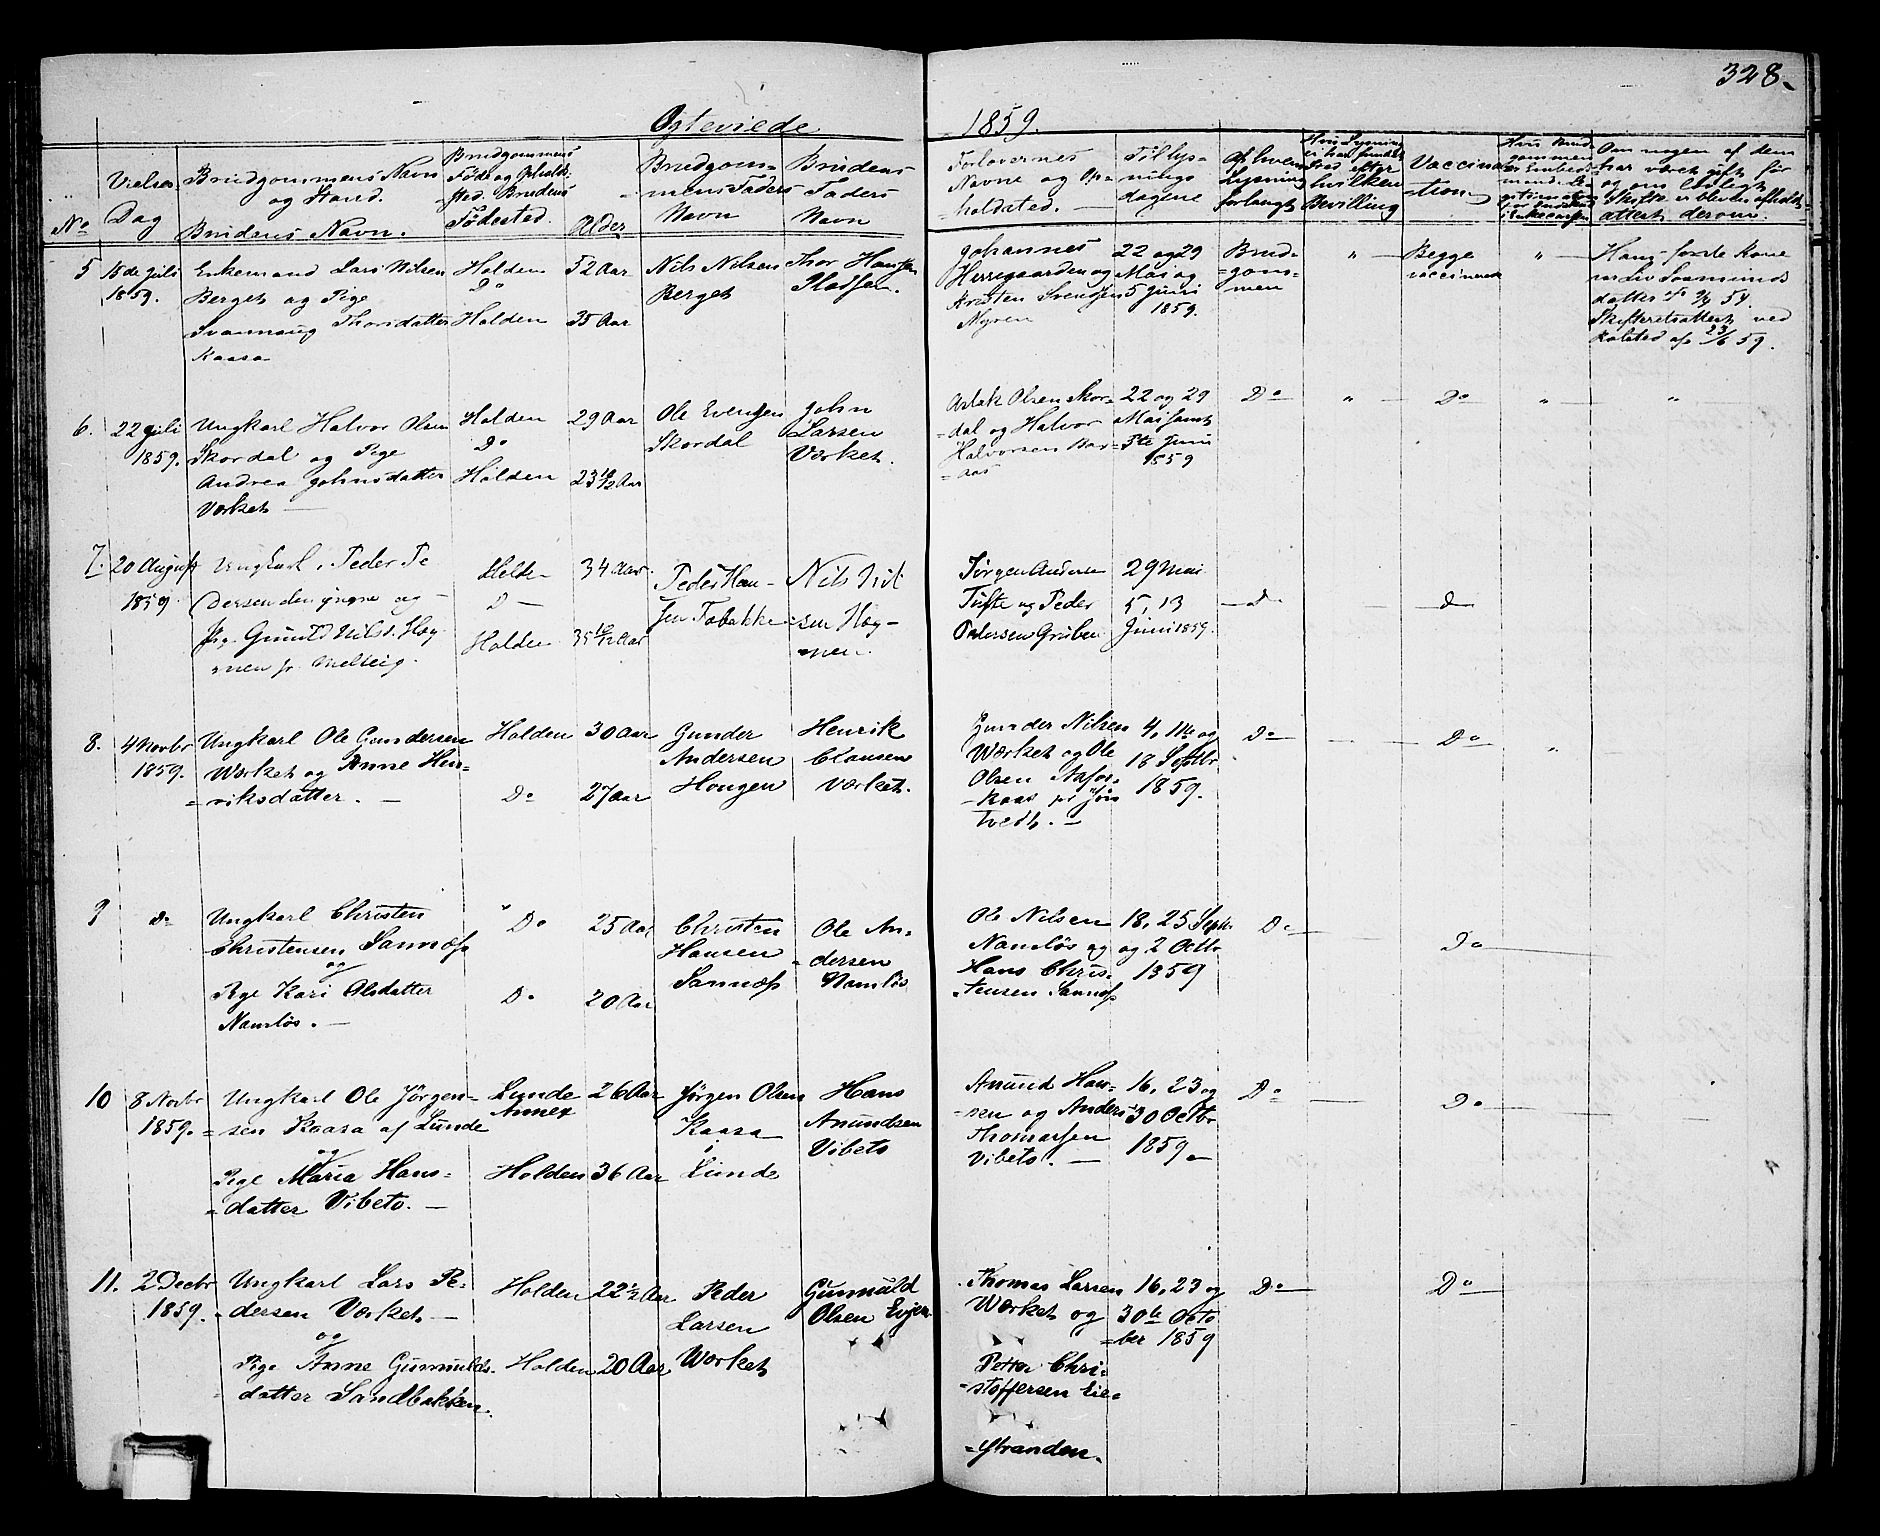 328.
Ogteviede
1859.
No
Vielses Dag
Brudgommens Navn og Stand.
Brudens Navn.
Brudgommens Føde og Opholds-sted. Brudens Fødested.
Alder
Brudgom-mens Faders Navn
Brudens Faders Navn
Forlovernes Navne og Op-holdsted.
Tillys-nings dagene
Af hvem Lysning forlangt
Hvis Lysning ei har fundet Sted efter hvilken Bevilling
Vaccina-tion
Om nogen af dem har været gift før og om lovligt Skifte er bleven afholdt attest derom.
5
15de Juli
1859.
Enkemand Lars Nilsen
Berget og Pige
Svannaug Thorsdatter
Kaasa
Holden
Do
Holden
52 Aar
35 Aar
Nils Nilsen
Berget
Thor Hansen
Johannes
Herregaarden og
Svendsen
Myren
22 og 29
Mai og
5 Juni
1859.
Brud-
=gom-
=men
"
Begge
vaccinerede
"
Hans forste Kone
datter
54.
Skifteretsattest ved
af 23/6 59.
6.
22 Juli
1859.
Ungkarl Halvor Olsen
Skordal og Pige
Andrea Johnsdatter
Værket
Holden
Do
Holden
29 Aar
23 10/12 Aar
Ole Evensen
Skordal
John
Larsen
Værket.
Aslak Olsen Skor-
=dal og Halvor
Halvorsen
22 og 29
Mai samt
5te Juni
1859
Do
"
Do
"
"
7.
20 August
1859.
Ungkarl Peder Pe
dersen den yngre og
Pige Gunild Nilsd. Høg-
=nen
Do
Holden
34 Aar
35 10/12 Aar
Peder Han-
sen Tabakke
Nils Nil
=sen Høg-
nen.
Jørgen Andersen
Tufte og Peder
Pedersen Gruben
29 Mai
5, 13
Juni 1859.
Do
Do
8.
4 Novbr
1859.
Ungkarl Ole Gundersen
Værket og Anne Hen-
=riksdatter.
Holden
Do
30 Aar
27 Aar
Gunder
Andersen
Haugen
Henrik
Clausen
Værket.
Gunder Nilsen
Værket og Ole
Olsen
4, 11te og
18 Septbr
1859.
Do
Do
"
9
Do
Ungkarl Christen
Christensen Sannæs
og
Pige Kari Olsdatter
Namløs.
Do
Do
25 Aar
20 Aar
Christen
Hansen
Sannæs
Ole An-
=dersen
Namløs
Ole Nilsen
Namløs og
Hans Chris-
=tensen Sannæs
18, 25 Septr
og 2 Octbr
1859
Do
Do
10
8 Novbr
1859.
Ungkarl Ole Jørgen-
=sen Kaasa af Lunde
og
Pige Maria Hans-
=datter Vibeto.
Lunde
Annex
Holden
26 Aar
36 Aar
Jørgen Olsen
Kaasa
i
Lunde
Hans
Anundsen
Vibeto
Anund Han-
=sen og Anders
Thomassen
Vibeto.
16, 23 og
30 Octbr
1859
Do
Do
11.
2 Decbr
1859.
Ungkarl Lars Pe-
=dersen Værket
og
Pige Anne Gunnulds-
datter Sandbakken.
Holden
Holden
22 1/2 Aar
20 Aar
Peder
Larsen
Værket
Gunnuld
Olsen Evjen
Thomas Larsen
Værket og
Petter Chri-
=stoffersen Eie-
=stranden.
16, 23 og
30te Octo
=ber 1859
Do
Do